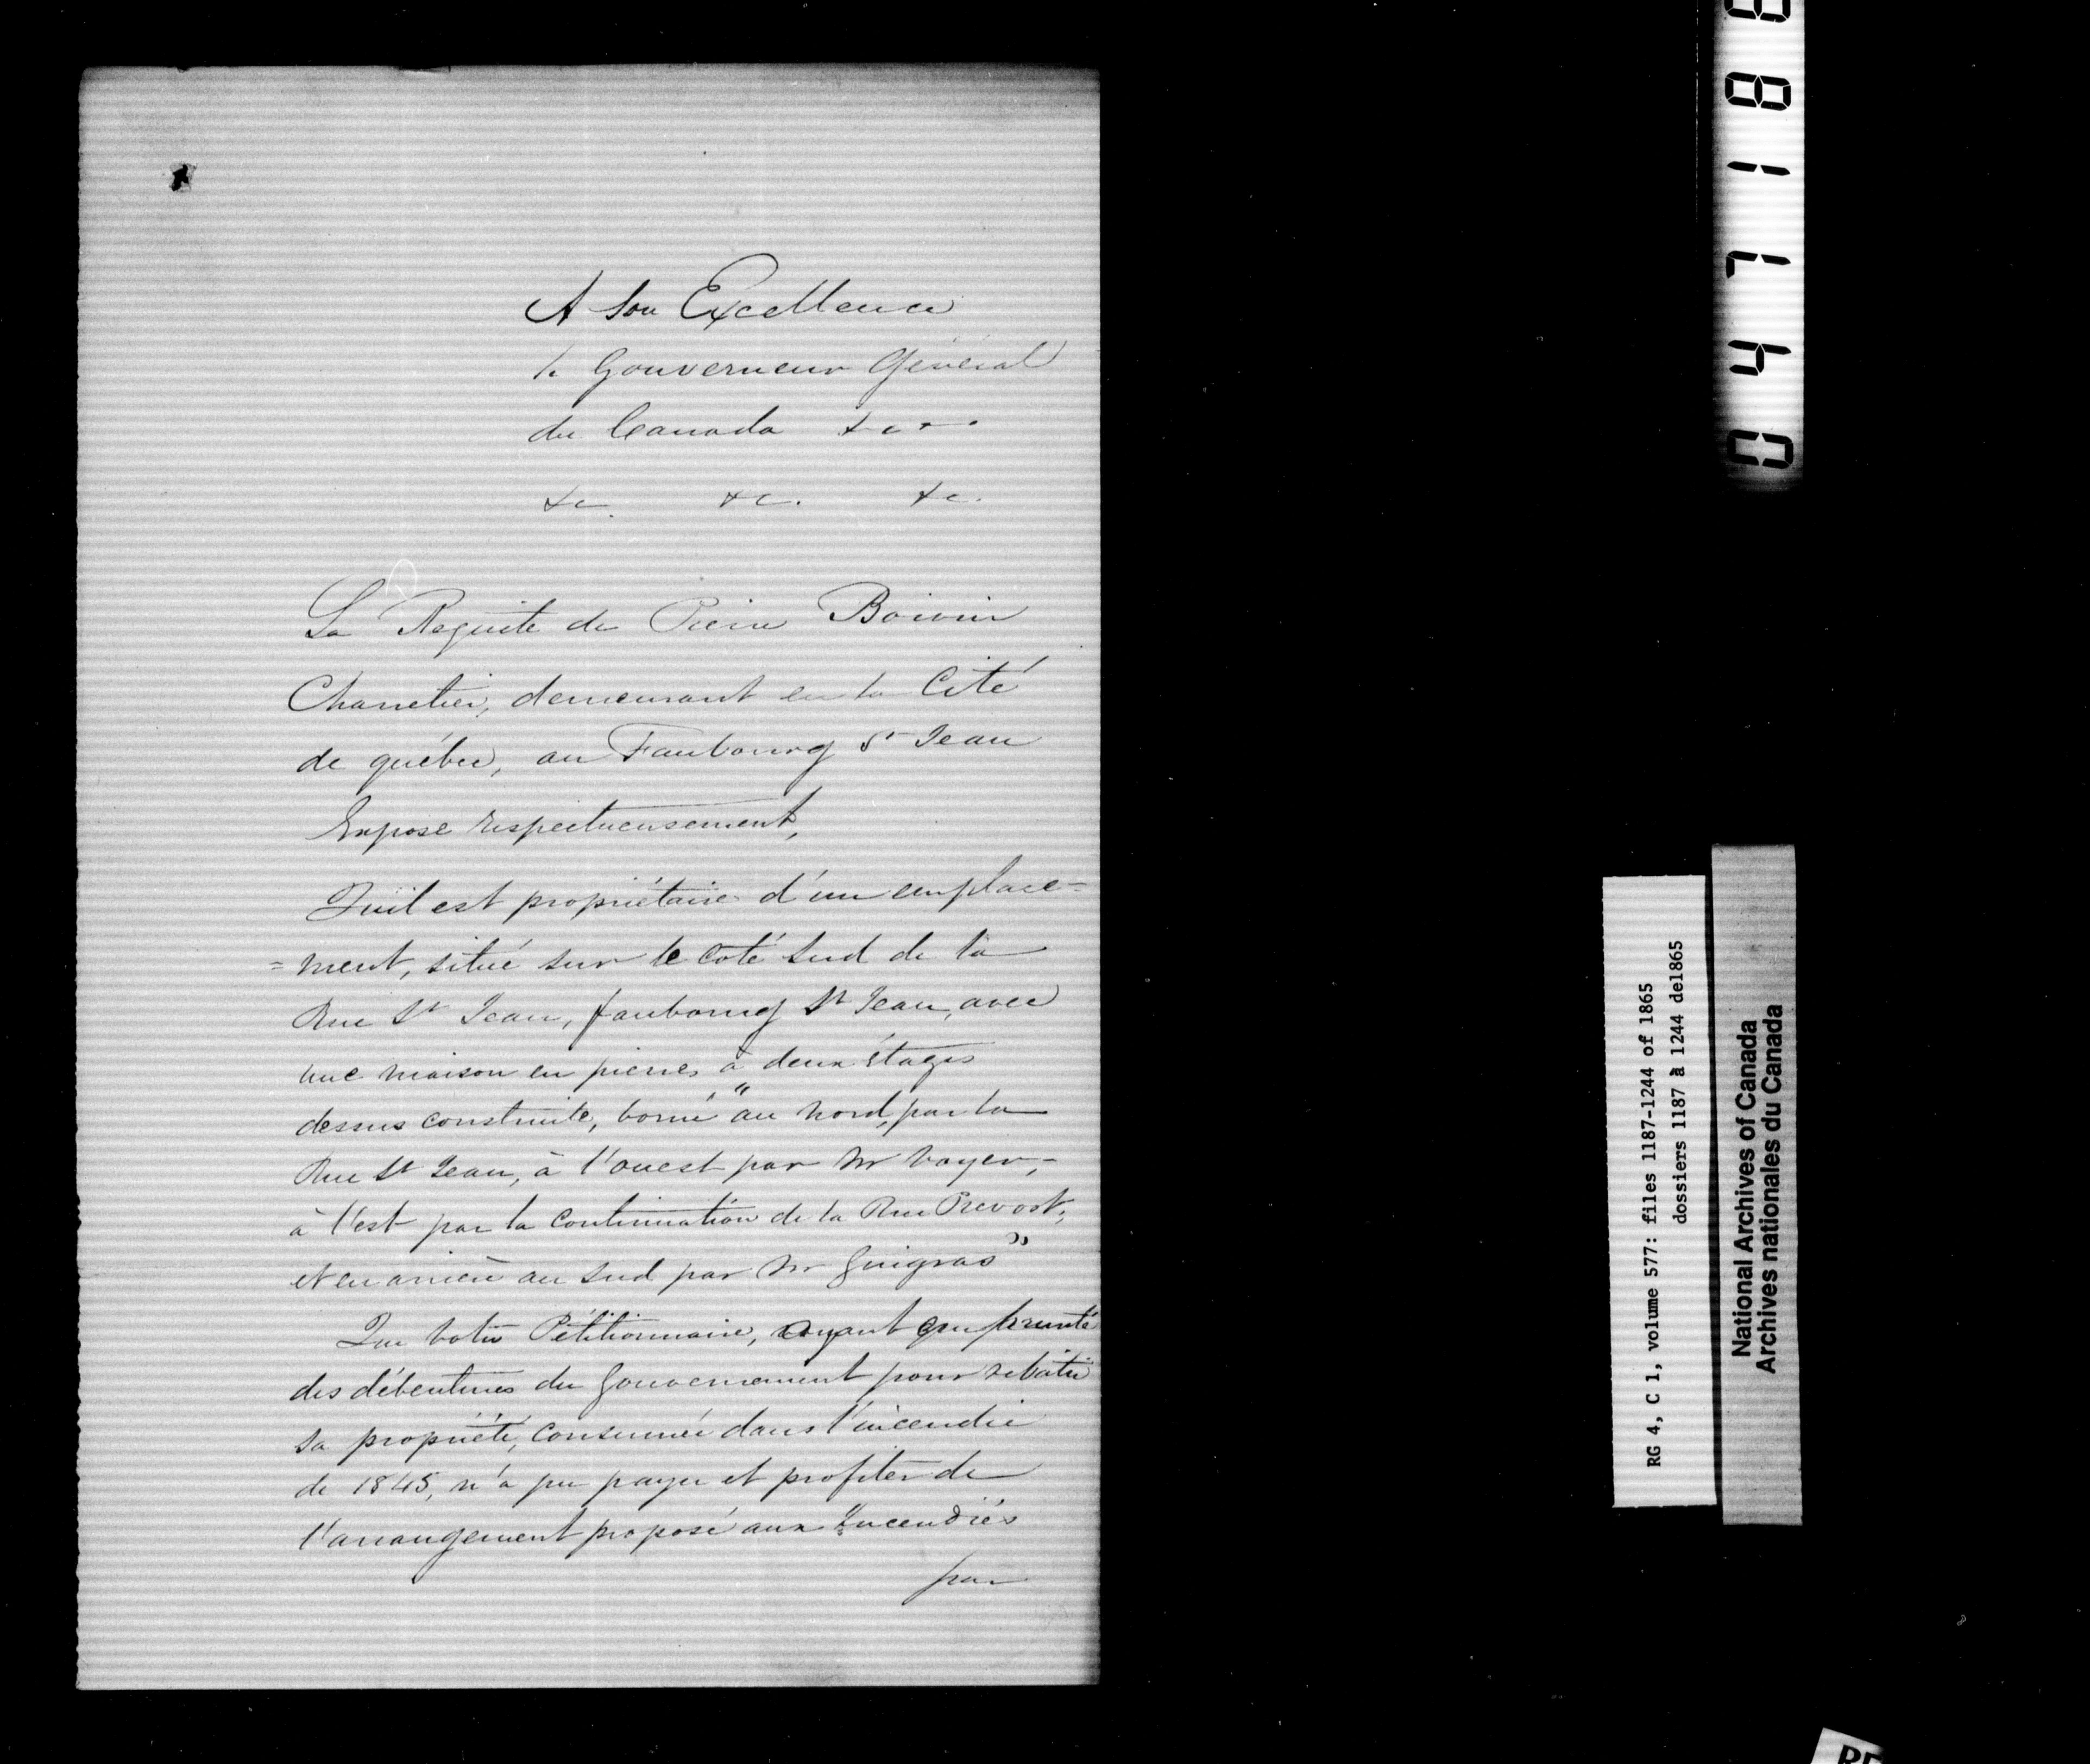 A Son Excellence
le Gouverneur Général
du Canada &c
&c. &c. &c.
La Requête de Pierre Boivin
Charretier, demeurant en la Cité
de québec, au Faubourg St Jean
Expose respectueusement,
Qu'il est propriétaire d'un emplace=
=ment, situé sur le coté Sud de la
Rue St Jean, faubourg St Jean, avec
une maison en pierres à deux étages
dessus construite, borné "au nord, par la
Rue St Jean, à l'ouest par Mr Voyer,-
à l'est par la continuation de la Rue Prevost;
et en arrière au Sud par Mr Guigras"
Que votre Pétitionnaire, ayant emprunté
des débentures du Gouvernement pour rebâtir
sa propriété, consumée dans l'incendie
de 1845, n'a pu payer et profiter de
l'arrangement proposé aux Incendiés
par
047188
RG 4, C 1, volume 577: files 1187-1244 of 1865
dossiers 1187 à 1244 de1865
National Archives of Canada
Archives nationales du Canada